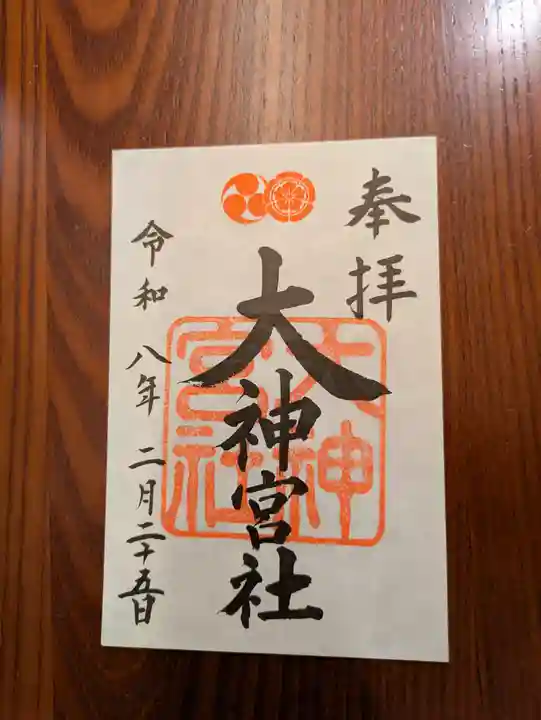 奉拝
大神宮社
大神宮社
令和八年二月二十五日